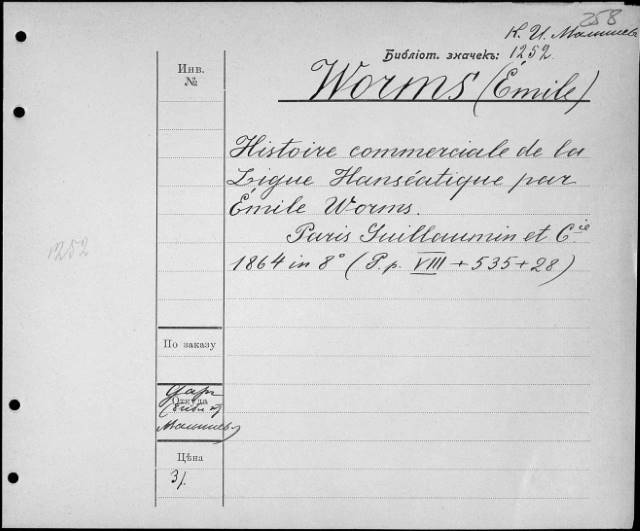 258
К. И. Малышев
Библіот. значекъ: 1252
Инв.
№
Worms (Émile)
Histoire commerciale de la
Ligue Hanséatique par
Émile Worms.
Paris Guillaumin et Cie
1252
1864 in 8° (P.p. VIII + 535 + 28)
По заказу
Даръ
Откуда
(библ
Малышев)
Цѣна
3/.